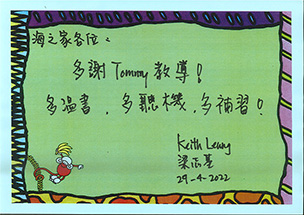 海之家各位：
多謝 Tommy 教導！
多溫書，多聽機，多補習！
Keith Leung
梁志基
29-4-2022